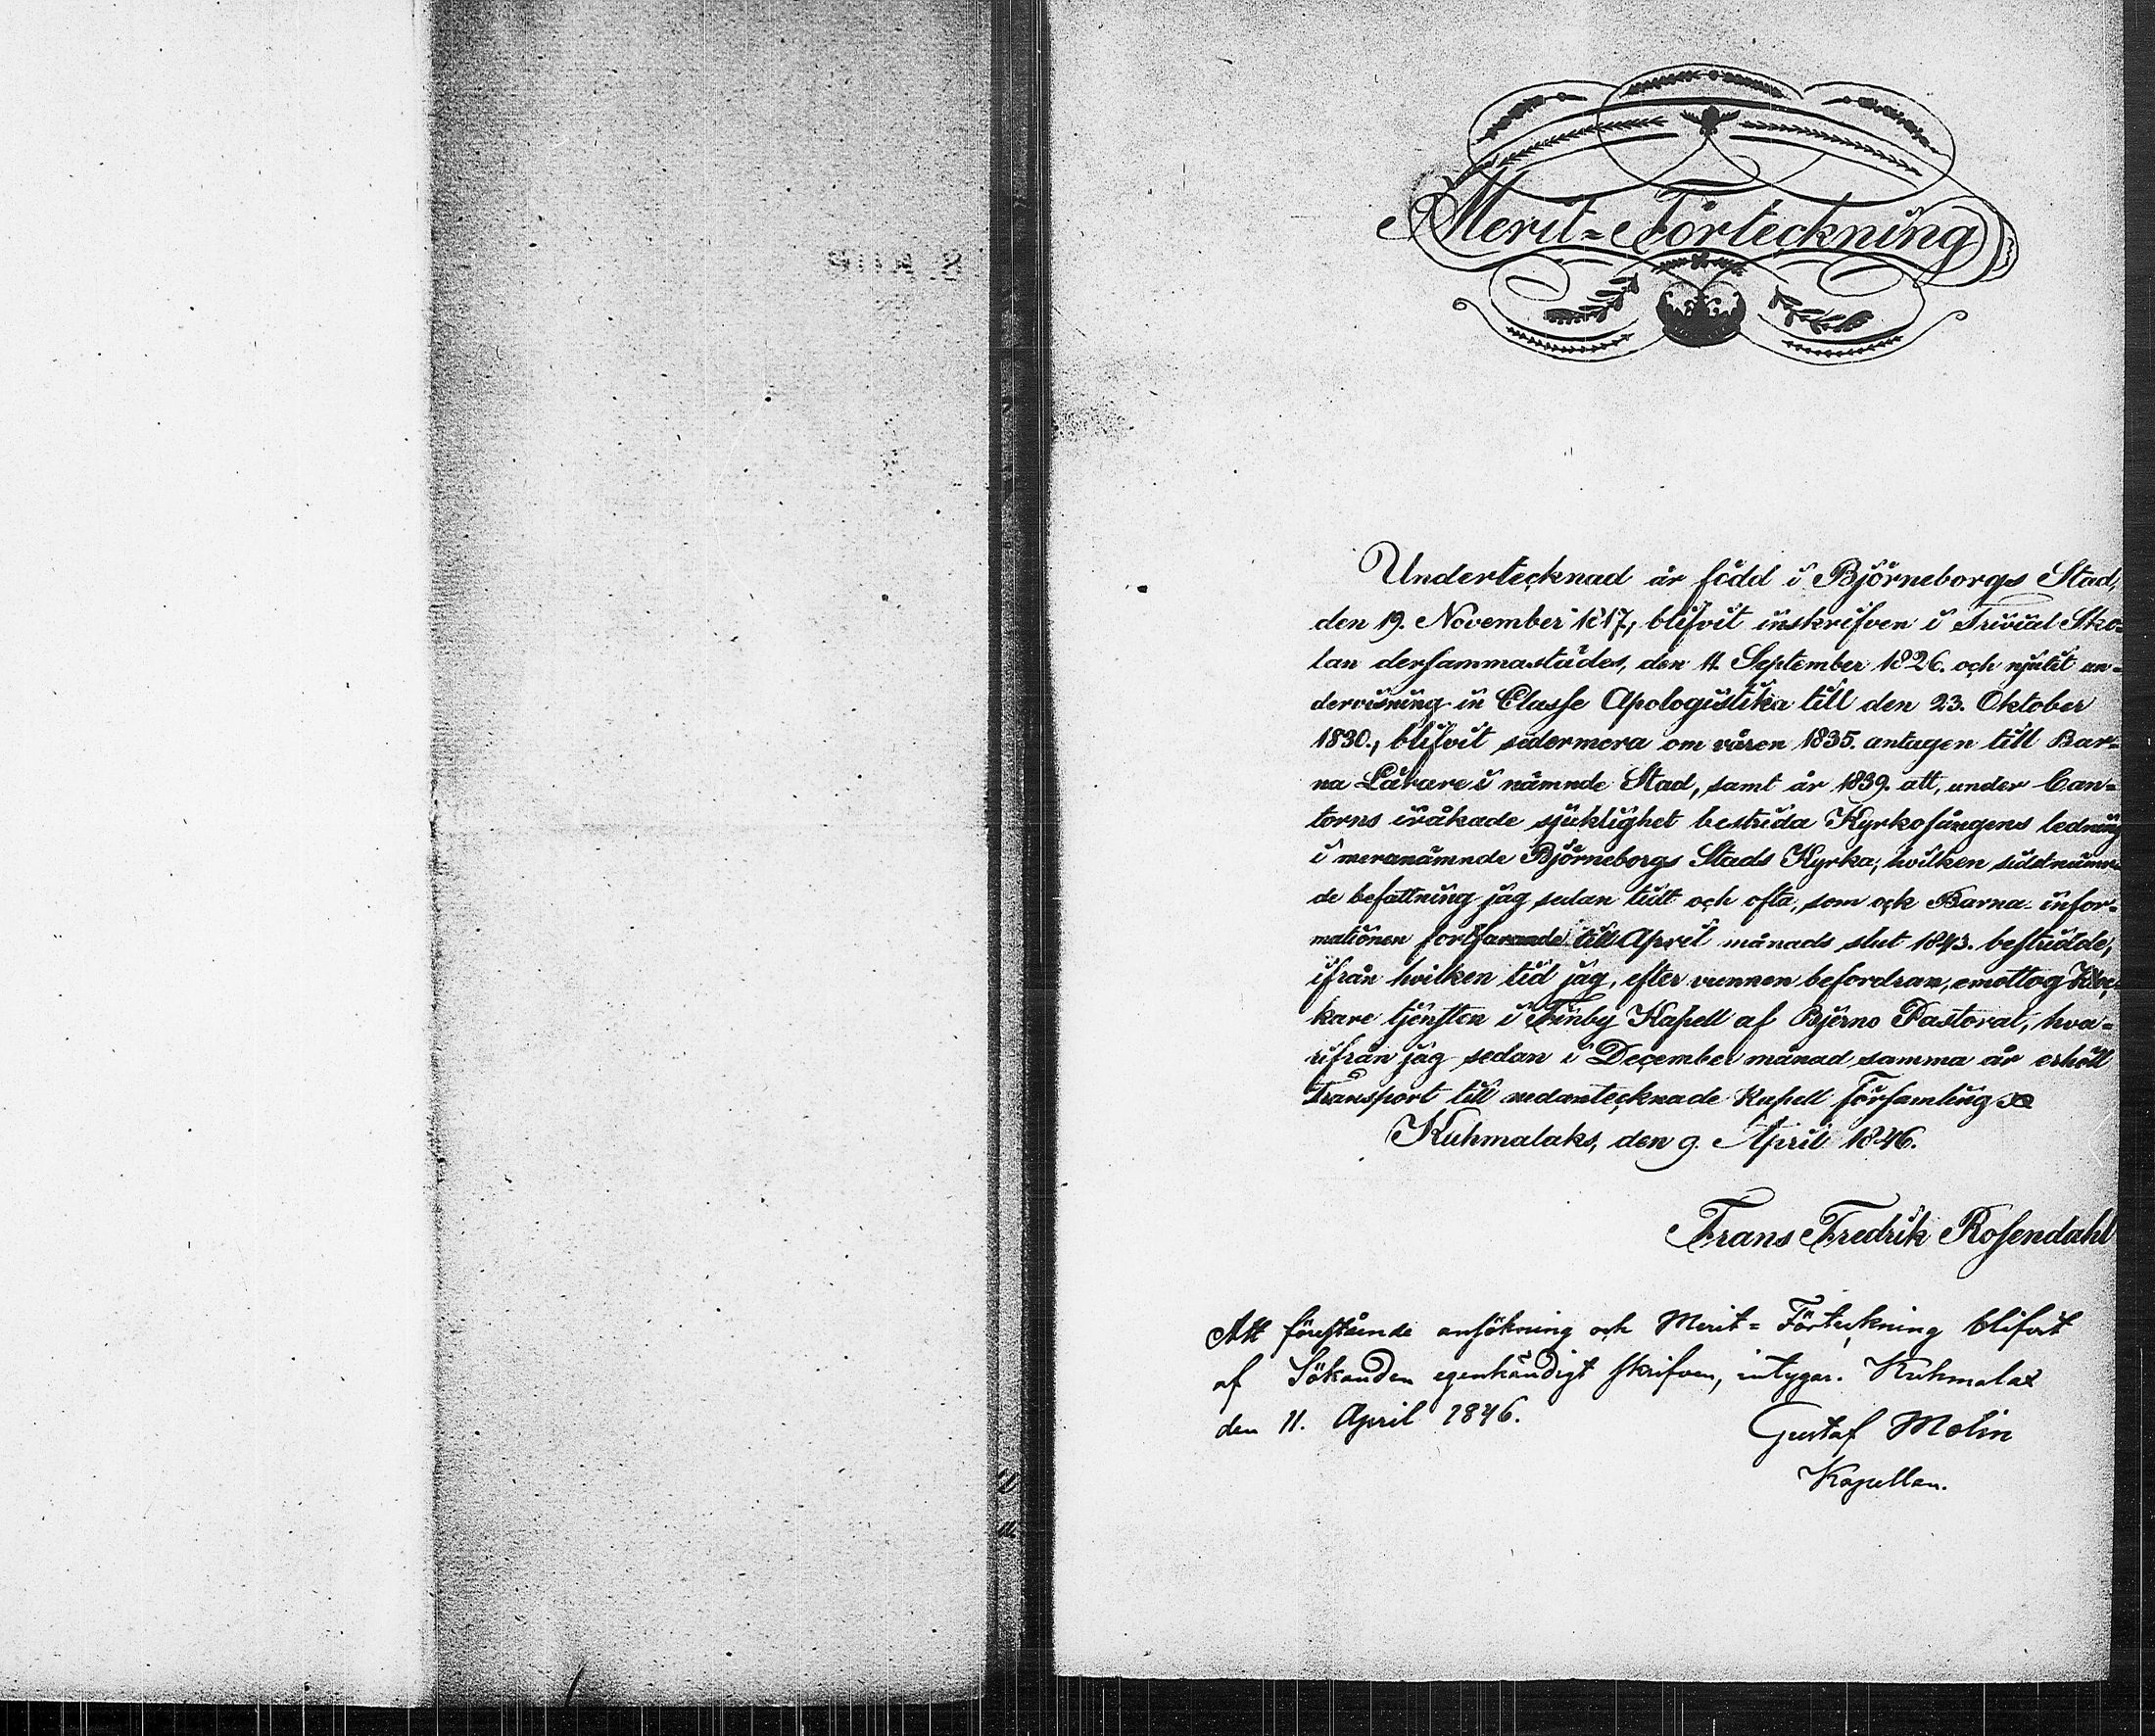 Merit=Förteckning
Undertecknad är född i Björneborgs Stad,
den 19. November 1817, blifvit inskrifven i Trivial Sko=
lan dersammastädes, den 11. September 1826. och njutit un=
dervisning in Classe Apologistika till den 23. Oktober
1830., blifvit sedermera om våren 1835. antagen till Bar=
na Lärare i nämnde Stad, samt år 1839. att, under Can=
torns iråkade sjuklighet bestrida Kyrkosångens ledning
i meranämnde Björneborgs Stads Kyrka, hvilken sidstnämn=
de befattning jag sedan tidt och ofta, som ock Barna-infor=
mationen fortfarande till April månads slut 1843. bestridde,
ifrån hvilken tid jag, efter vunnen befordran, emottog
kare tjensten i Finby Kapell af Bjerno Pastorat, hva=
rifrån jag sedan i December månad samma år erhöll
Transport till nedantecknade Kapell Församling
Kuhmalaks, den 9. April 1846.
Frans Fredrik Rosendahl
Att förestående ansökning och Merit=Förteckning blifvit
af Sökanden egenhändigt skrifven, intygar. Kuhmalax
den 11. April 1846.
Gustaf Molin
Kapellan.